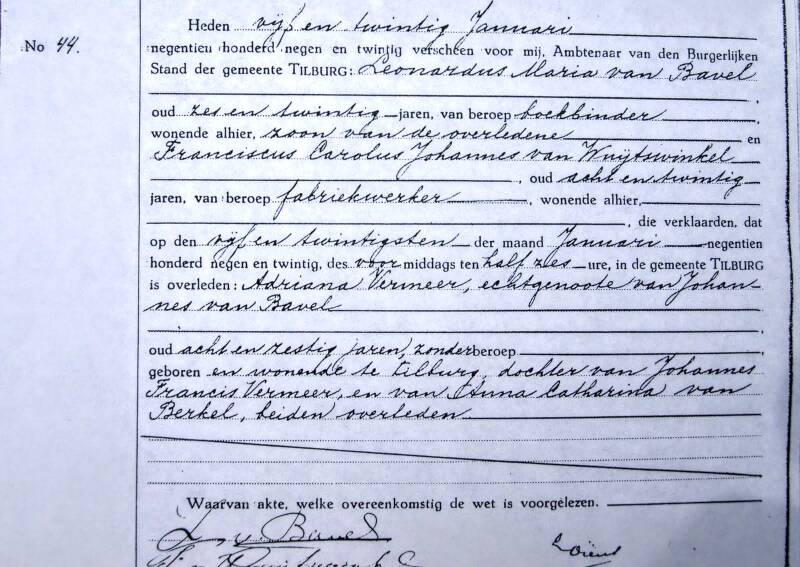 Heden vijf en twintig Januari
No 44.
negentien honderd negen en twintig verscheen voor mij, Ambtenaar van den Burgerlijken
Stand der gemeente TILBURG: Leonardus Maria van Bavel
,
oud zes en twintig jaren, van beroep boekbinder
wonende alhier, zoon van de overledene en
Franciscus Carolus Johannes van Wuijtswinkel
, oud acht en twintig
jaren, van beroep fabriekwerker , wonende alhier,
, die verklaarden, dat
op den vijf en twintigsten der maand Januari negentien
honderd negen en twintig, des voormiddags ten half zes ure, in de gemeente TILBURG
is overleden: Adriana Vermeer, echtgenoote van Johan-
nes van Bavel
,
oud acht en zestig jaren, zonder beroep ,
geboren en wonende te Tilburg, dochter van Johannes
Francis Vermeer, en van Anna Catharina van
Berkel, beiden overleden
Waarvan akte, welke overeenkomstig de wet is voorgelezen.
L. v. Bavel